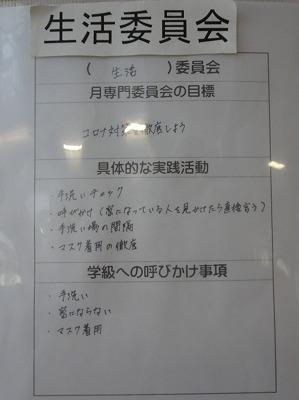 生活委員会
( 生活 )委員会
月専門委員会の目標
コロナ対策を徹底しよう
具体的な実践活動
・手洗いチェック
・呼びかけ(密になっている人を見かけたら直接言う)
・手洗い場の間隔
・マスク着用の徹底
学級への呼びかけ事項
・手洗い
・密にならない
・マスク着用